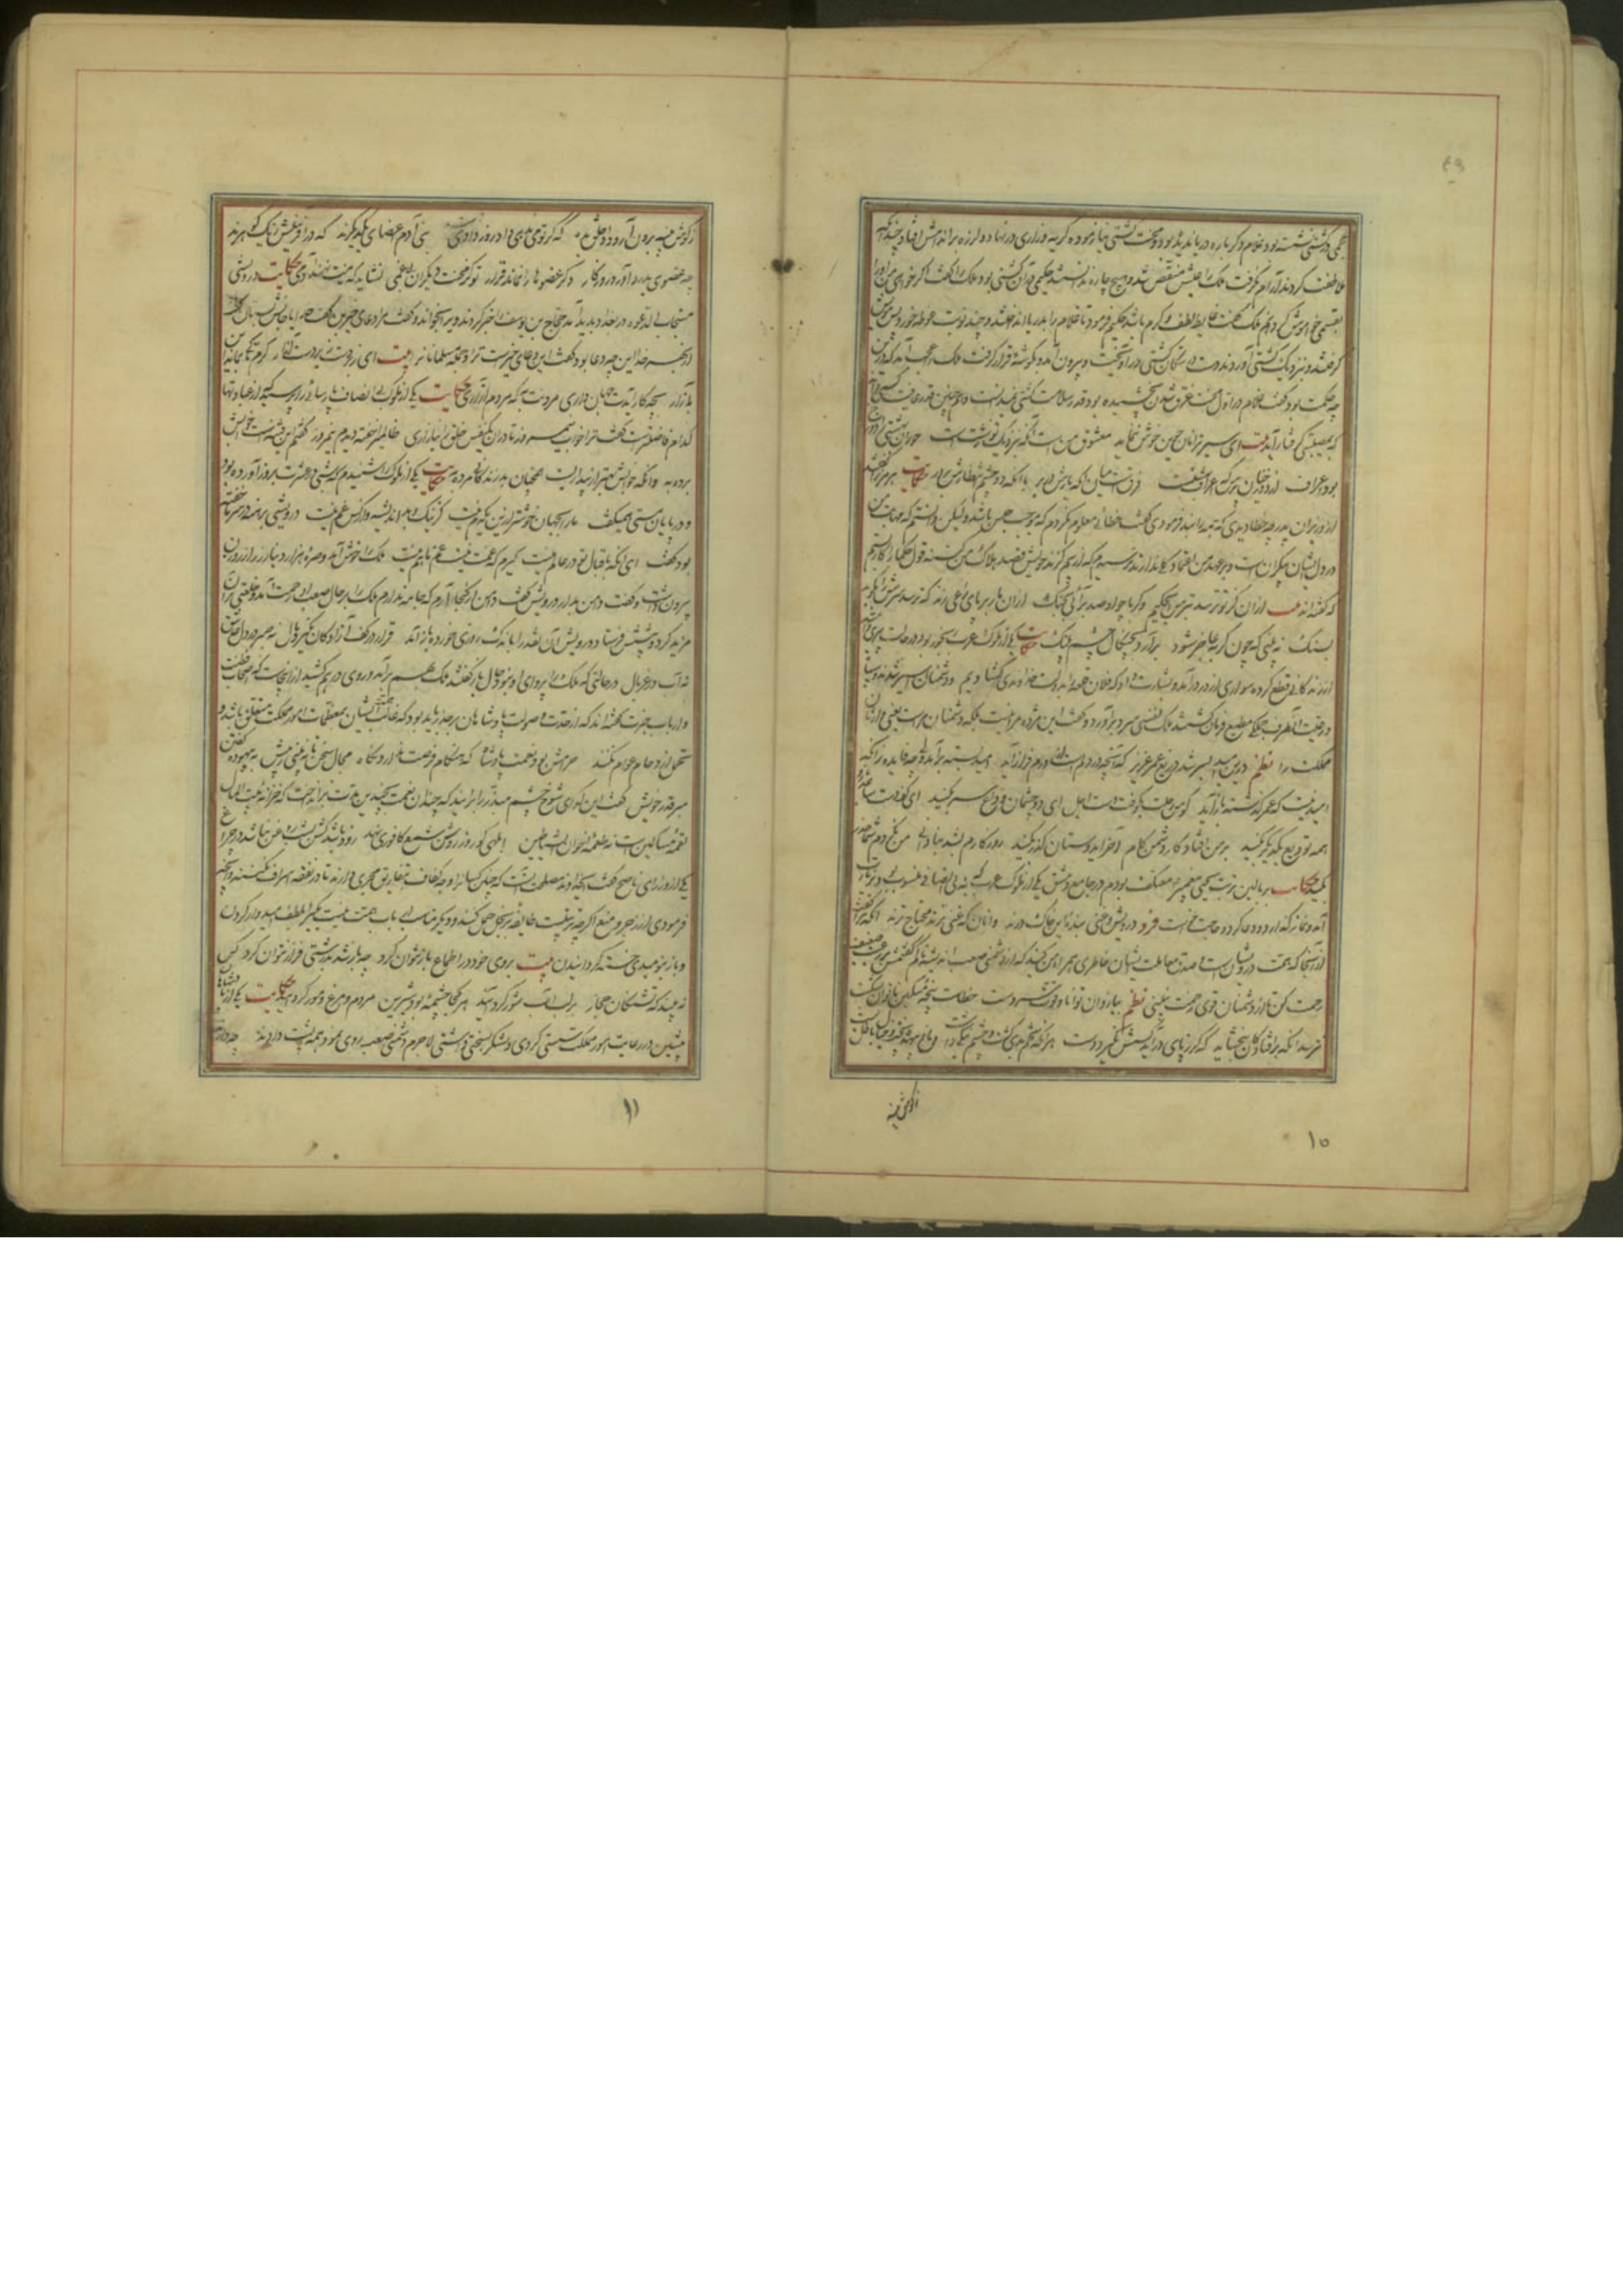 عجمی در کشتی نشسته بود و غلام دکر باره دریا ندیده بود و محنت کشتی نیازموده کریه و زاری در نهاد و لرزه بر اندامش افتاد چندانکه
ملاطفت کردند آرام نکرفت ملک را عیش منغص شد و هیچ چاره ندانستند حکیمی در آن کشتی بود ملک را کفت اکر خواهی من او را
بطریقی خاموش کردانم ملک کفت غایت لطف و کرم باشد حکیم فرمود تا غلام را بدریا انداختند و چند نوبت غوطه خورد پس مویش
کرفتند و نزدیک کشتی آوردند دست در سکان کشتی در آویخت و بیرون آمد و بکوشه قرار کرفت ملک را عجب آمد که درین
چه حکمت بود کفت غلام در اول محنت غرق شدن نچشیده بود قدر سلامت کشتی نمیدانست و همچنین قدر عافیت کسی داند
که بمصیبتی کرفتار آید بیت ای سیر ترا نان جوین خوش ننماید معشوق منست آنکه بنزدیک تو زشتست حوران بهشتی را دوزخ
بود اعراف از دوزخیان پرس که اعراف بهشتست فرقست میان آنکه یارش در بر با آنکه دو چشم انتظارش بر در حکایت هرمز را کفتند
از وزیران پدر چه خطا دیدی که همه را بند فرمودی کفت خطائی معلوم نکردم که موجب حبس باشد ولیکن دانستم که مهابت من
در دل ایشان بیکرانست و بر عهد من اعتماد کلی ندارند ترسیدم که از بیم کزند خویش قصد هلاک من کنند قول حکما را کار بستم
که کفته‌اند بیت از آن کز تو ترسد بترس ای حکیم و کر با چو او صد برآئی بجنک از آن مار بر پای راعی زند که ترسد سرش را بکوبد
بسنک نه بینی که چون کربه عاجز شود برآرد بچنکال چشم پلنک حکایت یکی از ملوک عرب رنجور بود در حالت پیری و امید
از زندکانی قطع کرده سواری از در درآمد و بشارت داد که فلان قلعه را بدولت خداوندی کشادیم و دشمنان اسیر شدند و سپاه
و رعیت آنطرف بجملکی مطیع فرمان کشتند ملک نفسی سرد برآورد و کفت این مژده مرا نیست بلکه دشمنان مراست یعنی وارثان
مملکت را نظم درین امید بسر شد دریغ عمر عزیز که آنچه در دلم است از درم فراز آید امید بسته برآمد ولی چه فایده زانکه
امید نیست که عمر کذشته باز آید کوس رحلت بکوفت دست اجل ای دو چشمم وداع سر کنید ای کف دست و ساعد و بازو
همه تودیع یکدیکر بکنید بر من افتاد کار دشمن کام آخر ای دوستان کذر بکنید روزکارم بشد بنادانی من نکردم شما حذر
بکنید حکایت بر بالین تربت یحیی پیغمبر معتکف بودم در جامع دمشق یکی از ملوک عرب که به بی انصافی منسوب بود بزیارت
آمد و نماز کذارد و دعا کرد و حاجت خواست فرد درویش و غنی بنده این خاک درند و آنان که غنی ترند محتاج ترند آنکه مرا کفت
از آنجا که همت درویشانست و صدق معاملت ایشان خاطری همراه من کنید که از دشمنی صعب اندیشناکم کفتمش بر رعیت ضعیف
رحمت کن تا از دشمنان قوی زحمت نبینی نظم ببازوان توانا و قوت سر دست خطاست پنجه مسکین ناتوان بشکست
نترسد آنکه بر افتادکان نبخشاید که کر ز پای درآید کسش نکیرد دست هر آنکه تخم بدی کشت و چشم نیکی داشت دماغ بیهده پخت و خیال باطل بست
ز کوش پنبه
۱۰
ز کوش پنبه برون آر و داد خلق بده که کر تو می ندهی داد روز دادی هست بنی آدم اعضای یکدیکرند که در آفرینش ز یک کوهرند
چو عضوی بدرد آورد روزکار دکر عضوها را نماند قرار تو کز محنت دیکران بیغمی نشاید که نامت نهند آدمی حکایت درویشی
مستجاب الدعوه در بغداد پدید آمد حجاج بن یوسف را خبر کردند و برا بخواند و کفت مرا دعای خیر بکن کفت خدایا جانش بستان
از بهر خدا این چه دعا بود کفت این دعای خیرست ترا و جمله مسلمانانرا بیت ای زبردست زیر دست آزار کرم تا کی بماند این
بازار بچه کار آیدت جهان داری مردنت به که مردم آزاری حکایت یکی از ملوک بی انصاف پارسائی را پرسید که از عبادتها
کدام فاضلتر است کفت ترا خواب نیمروز تا در آن یکنفس خلق را نیازاری ظالمی را خفته دیدم نیمروز کفتم این فتنه است خوابش
برده به وانکه خوابش بهتر از بیداریست آنچنان بد زندکانی مرده به حکایت یکی از ملوک را شنیدم که شبی در عشرت بروز آورده بود
و در پایان مستی همیکفت ما را بجهان خوشتر ازین یکدم نیست کز نیک و بد اندیشه و از کس غم نیست درویشی برهنه در سرما خفته
بود کفت ای آنکه باقبال تو در عالم نیست کیرم که غمت نیست غم ما هم نیست ملک را خوش آمد و صره هزار دینار زر از روزن
بیرون داشت و کفت دامن بدار درویش کفت دامن از کجا آرم که جامه ندارم ملک را بر حال ضعیف او رحمت آمد و خلعتی بر آن
مزید کرد و پیشش فرستاد درویش آن نقد را باندک روزی بخورد و باز آمد قرار در کف آزادکان نکیرد مال نه صبر در دل عاشق
نه آب در غربال در حالتی که ملک را پروای او نبود حال باز کفتند ملک بهم برآمد و روی درهم کشید از اینجاست که اصحاب فطنت
و ارباب خبرت کفته‌اند که از حدت و صولت پادشاهان بر حذر باید بود که غالب همت ایشان بمعظمات امور مملکت متعلق باشد و
تحمل ازدحام عوام نکنند حرامش بود نعمت پادشاه که هنکام فرصت ندارد نکاه مجال سخن تا نبینی ز پیش به بیهوده کفتن
مبر قدر خویش کفت این کدای شوخ چشم مبذر را برانید که چندان نعمت بچندین مدت برانداخت که خزانه بیت المال
لقمه مساکین است نه طعمه اخوان الشیاطین ابلهی کو روز روشن شمع کافوری نهد زود باشد کش بشب روغن نباشد در چراغ
یکی از وزرای ناصح کفت ای خداوند مصلحت آنست که چنین کسانرا وجه کفاف بتفاریق مجری دارند تا در نفقه اسراف نکنند و آنچه
فرمودی از زجر و منع اکر چه تربیتست طایفه بر بخل حمل کنند و دیکر مناسب ارباب همت نیست یکیرا بلطف امیدوار کردن
و باز بنومیدی خسته کردانیدن بیت بروی خود در اطماع باز نتوان کرد چو باز شد بدرشتی فراز نتوان کرد کس
نه بیند که تشنکان حجاز بر لب آب شور کرد آیند هر کجا چشمه بود شیرین مردم و مرغ و مور کرد آیند حکایت یکی از پادشاهان
پیشین در رعایت امور مملکت سستی کردی و لشکر بسختی داشتی لاجرم دشمنی صعب روی نمود همه پشت دادند چو دارند
۱۱